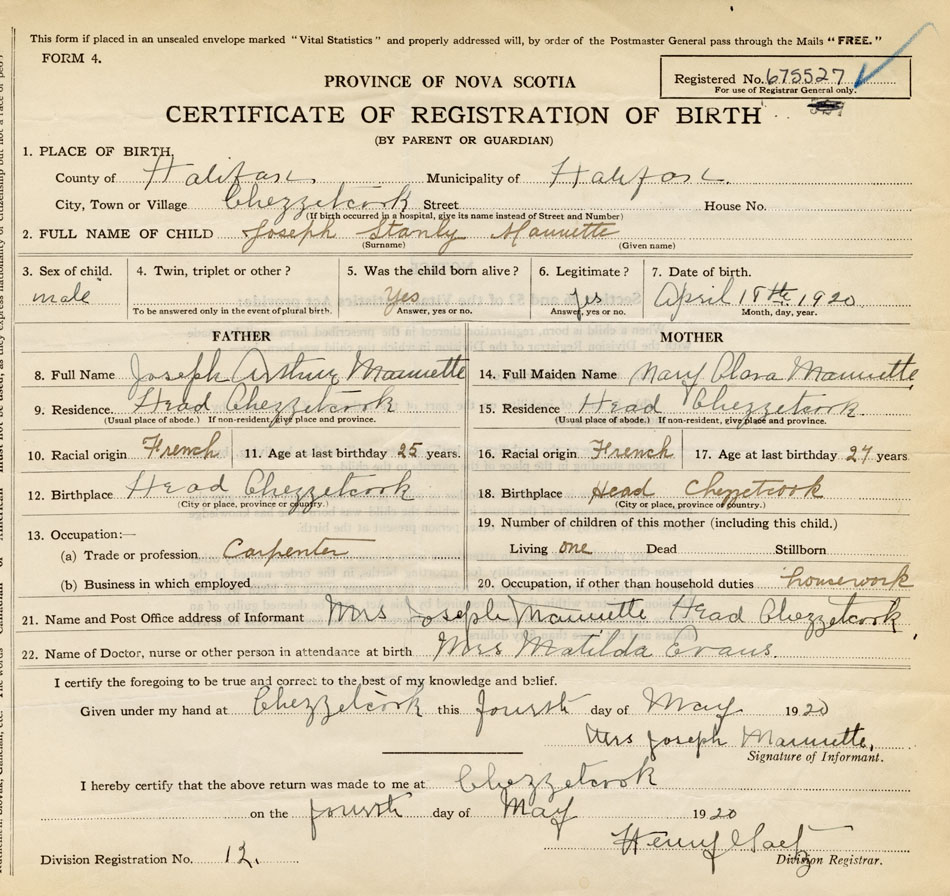 This form if placed in an unsealed envelope marked "Vital Statistics" and properly addressed will, by order of the Postmaster General pass through the Mails "FREE."
FORM 4.
Registered No. 675527
For use of Registrar General only.
PROVINCE OF NOVA SCOTIA
CERTIFICATE OF REGISTRATION OF BIRTH
(BY PARENT OR GUARDIAN)
1. PLACE OF BIRTH
County of Halifax Municipality of Halifax.
City, Town or Village Chezzetcook Street House No.
(If birth occurred in a hospital, give its name instead of Street and Number)
2. FULL NAME OF CHILD Joseph Stanly Mannette
(Surname) (Given name)
3. Sex of child. 4. Twin, triplet or other? 5. Was the child born alive? 6. Legitimate? 7. Date of birth.
male Yes yes April 18th 1920
To be answered only in the event of plural birth. Answer, yes or no. Answer, yes or no. Month, day, year.
FATHER MOTHER
8. Full Name Joseph Arthur Mannette 14. Full Maiden Name Mary Clara Mannette
9. Residence. Head Chezzetcook 15. Residence Head Chezzetcook
(Usual place of abode.) If non-resident, give place and province. (Usual place of abode.) If non-resident, give place and province.
10. Racial origin French 11. Age at last birthday 25 years. 16. Racial origin French 17. Age at last birthday 27 years.
12. Birthplace Head Chezzetcook 18. Birthplace Head Chezzetcook
(City or place, province or country.) (City or place, province or country.)
13. Occupation:— 19. Number of children of this mother (including this child.)
(a) Trade or profession Carpenter Living one Dead Stillborn
(b) Business in which employed 20. Occupation, if other than household duties housework
21. Name and Post Office address of Informant Mrs Joseph Mannette Head Chezzetcook
22. Name of Doctor, nurse or other person in attendance at birth Mrs Matilda Evans.
I certify the foregoing to be true and correct to the best of my knowledge and belief.
Given under my hand at Chezzetcook this fourth day of May 1920
Mrs Joseph Mannette,
Signature of Informant.
I hereby certify that the above return was made to me at Chezzetcook
on the fourth day of May 1920
Henry
Division Registration No. 12. Division Registrar.